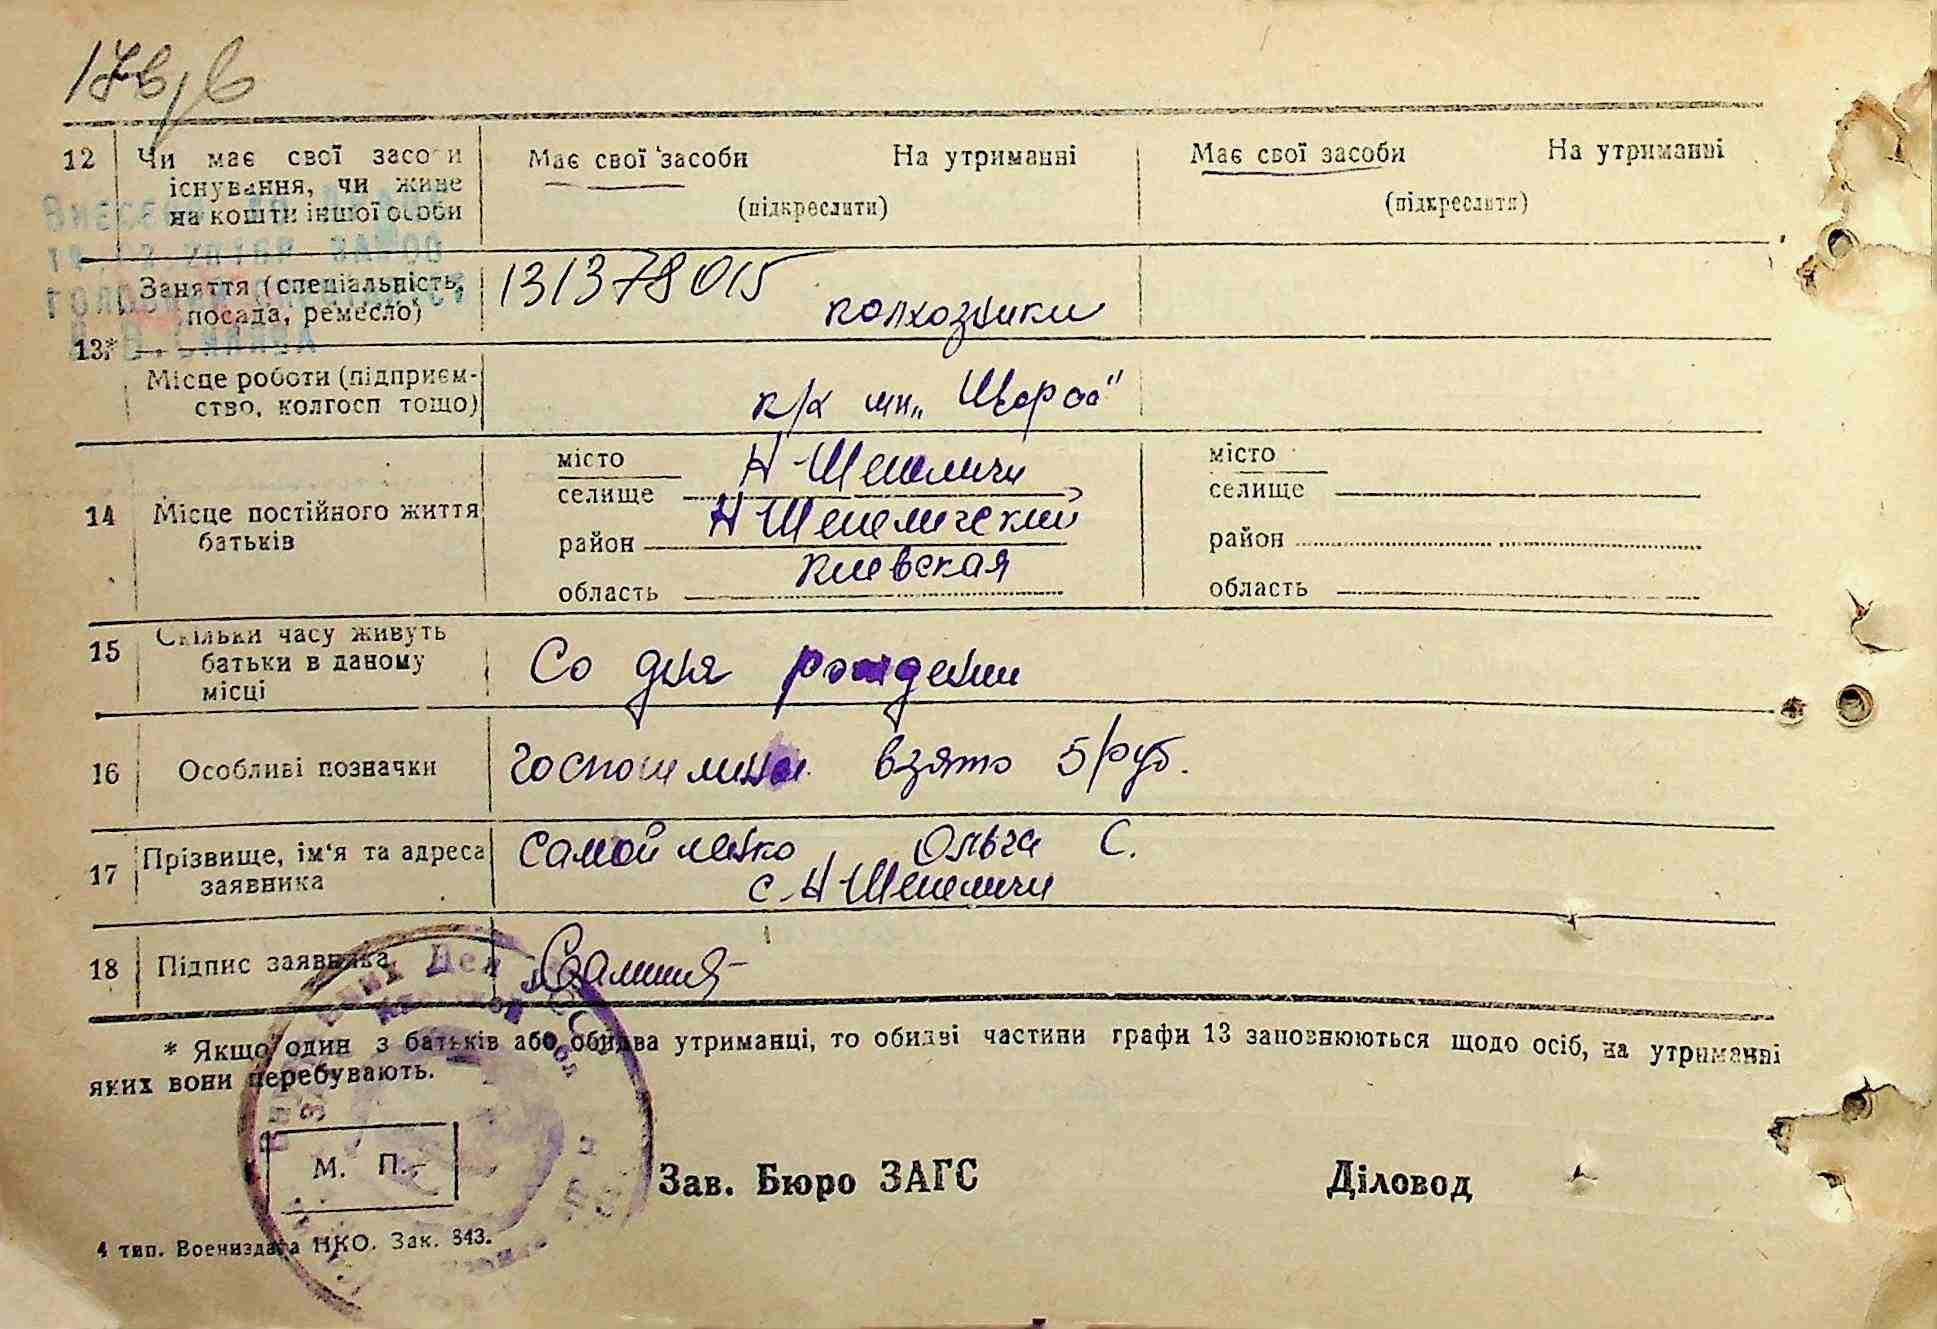 12 Чи має свої засоби Має свої засоби На утриманні Має свої засоби На утриманні
існування, чи живе
на кошти іншої особи (підкреслити) (підкреслити)
Заняття (спеціальність, 131378015
посада, ремесло) колхозники
13.*
Місце роботи (підприєм-
ство, колгосп тощо) к/х им. „Щорса"
місто Н-Шепеличи місто
селище селище
14 Місце постійного життя Н-Шепелический
батьків район район
Киевская
область область
15 Скільки часу живуть
батьки в даному Со дня рождении
місці
16 Особливі позначки госпошлины взято 5/руб.
17 Прізвище, ім'я та адреса Самойленко Ольга С.
заявника с. Н-Шепеличи
18 Підпис заявника
* Якщо один з батьків або обидва утриманці, то обидві частини графи 13 заповнюються щодо осіб, на утриманні
яких вони перебувають.
М. П. Зав. Бюро ЗАГС Діловод
4 тип. Воениздата НКО. Зак. 843.